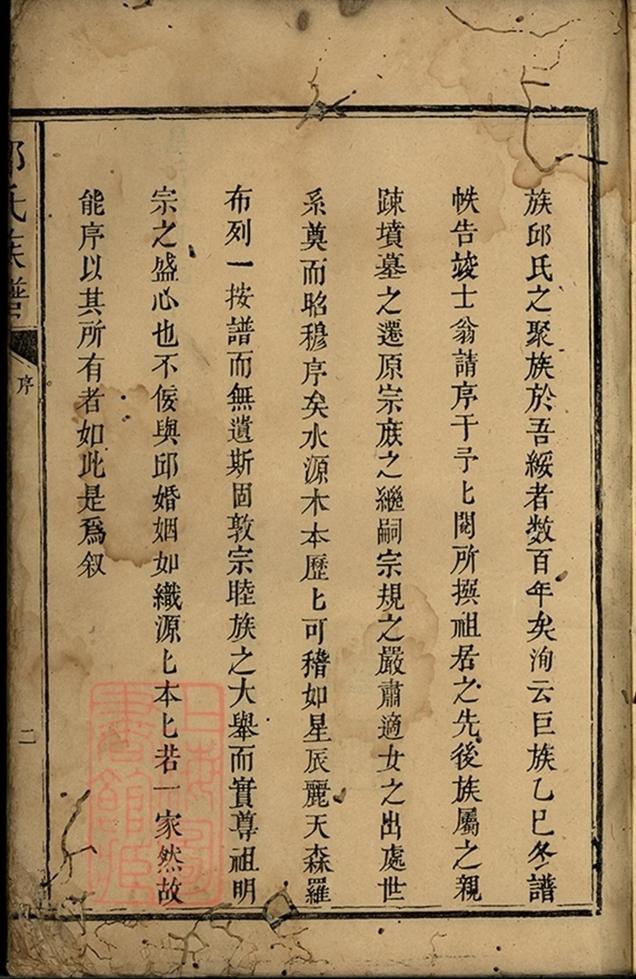 族邱氏之聚族於吾綏者数百年矣洵云巨族乙巳冬譜
帙告竣士翁請序于予匕閱所撰祖居之先後族屬之親
疎墳墓之遷原宗族之繼嗣宗規之嚴肅適女之出處世
系奠而昭穆序矣水源木本歷匕可稽如星辰麗天森羅
布列一按譜而無遺斯固敦宗睦族之大舉而實尊祖明
宗之盛心也不佞與邱婚姻如織源匕本匕若一家然故
能序以其所有者如此是爲叙
邱氏族譜
序
二
上海圖書館藏